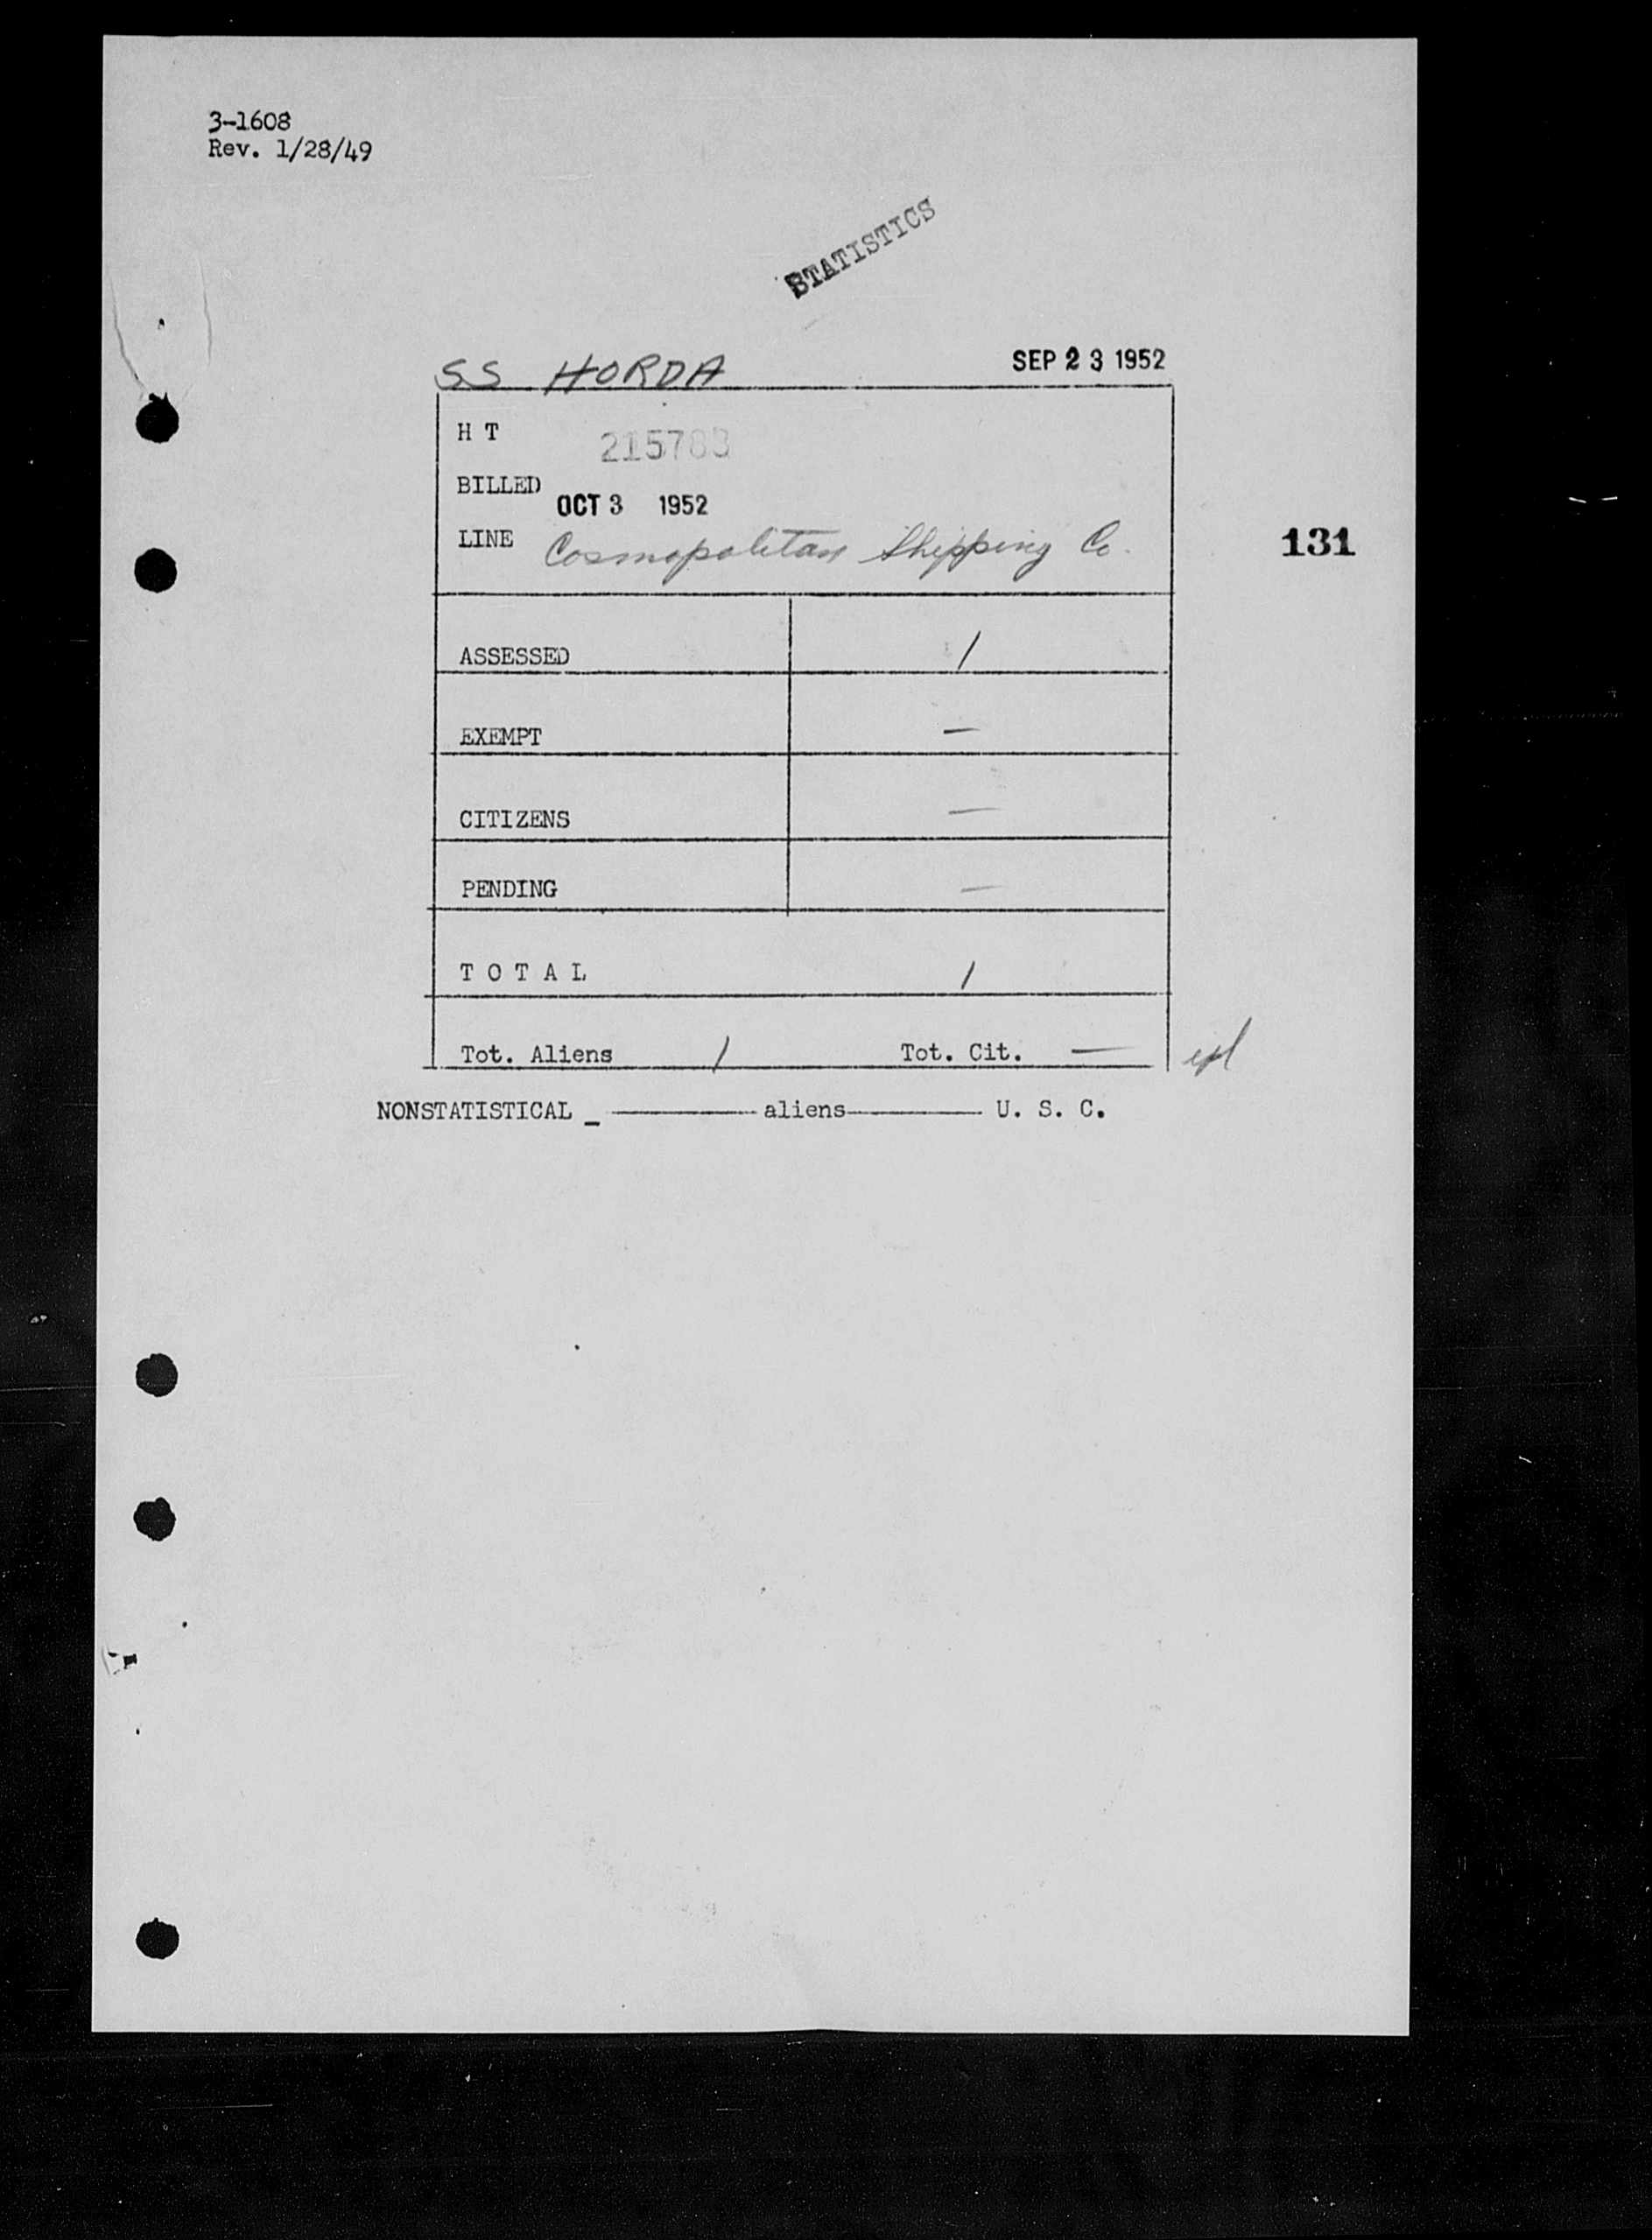 3-1608
Rev. 1/28/49
STATISTICS
SS HORDA SEP 23 1952
H T 215783
BILLED OCT 3 1952
LINE Cosmopolitan Shipping Co.
131
ASSESSED 1
EXEMPT —
CITIZENS —
PENDING —
T O T A L 1
Tot. Aliens 1 Tot. Cit. —
NONSTATISTICAL _ ———— aliens———— U. S. C.